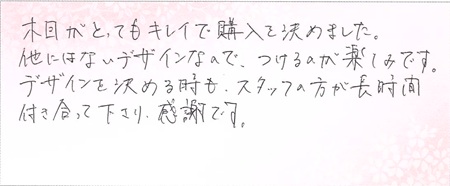 木目がとってもキレイで購入を決めました。
他にはないデザインなので、つけるのが楽しみです。
デザインを決める時も、スタッフの方が長時間
付き合って下さり、感謝です。